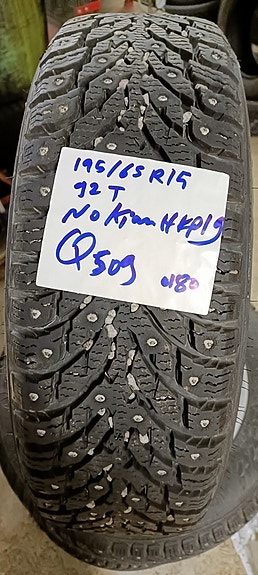 195/65 R15
92 T
Nokian HKPL9
Q509
180